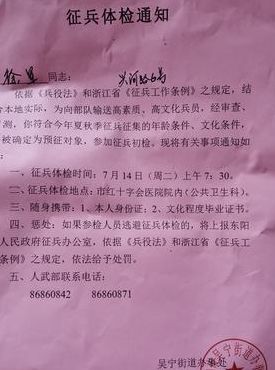 征兵体检通知
同志：
依据《兵役法》和浙江省《征兵工作条例》之规定，结
合本地实际，为向部队输送高素质、高文化兵员，经审查、
测，你符合今年夏秋季征兵征集的年龄条件、文化条件，
被确定为预征对象，参加征兵初检。现将有关事项通知如
：
一、征兵体检时间：7月14日（周二）上午7：30。
二、征兵体检地点：市红十字会医院院内（公共卫生科）。
三、随身携带：1、本人身份证；2、文化程度毕业证书。
四、惩处：如果参检人员逃避征兵体检的，将上报东阳
人民政府征兵办公室，依据《兵役法》和浙江省《征兵工
条例》之规定，依法给予处罚。
五、人武部联系电话：
86860842 86860871
吴宁街道办事处